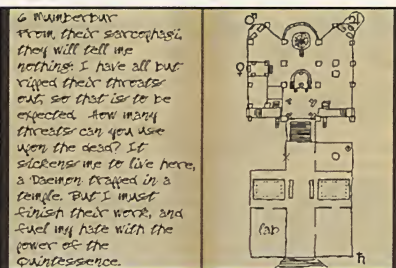 6 Mumberbur
From their sarcophagi,
they will tell me
nothing. I have all but
ripped their throats
out, so that is to be
expected. How many
threats can you use
upon the dead? It
sickens me to live here,
a Daemon trapped in a
temple. But I must
finish their work, and
fuel my hate with the
power of the
Quintessence.
♂
♃
♀
lab
♄